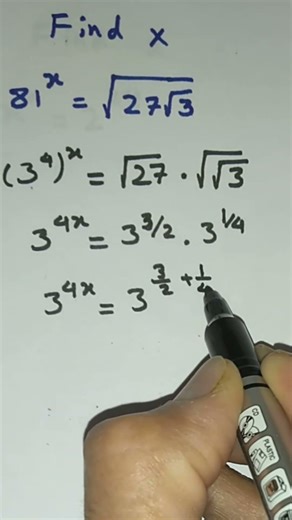 Find x
81^x = √(27√3)
(3^4)^x = √27 · √√3
3^4x = 3^3/2 · 3^1/4
3^4x = 3^(3/2 + 1/4)
PLASTIC